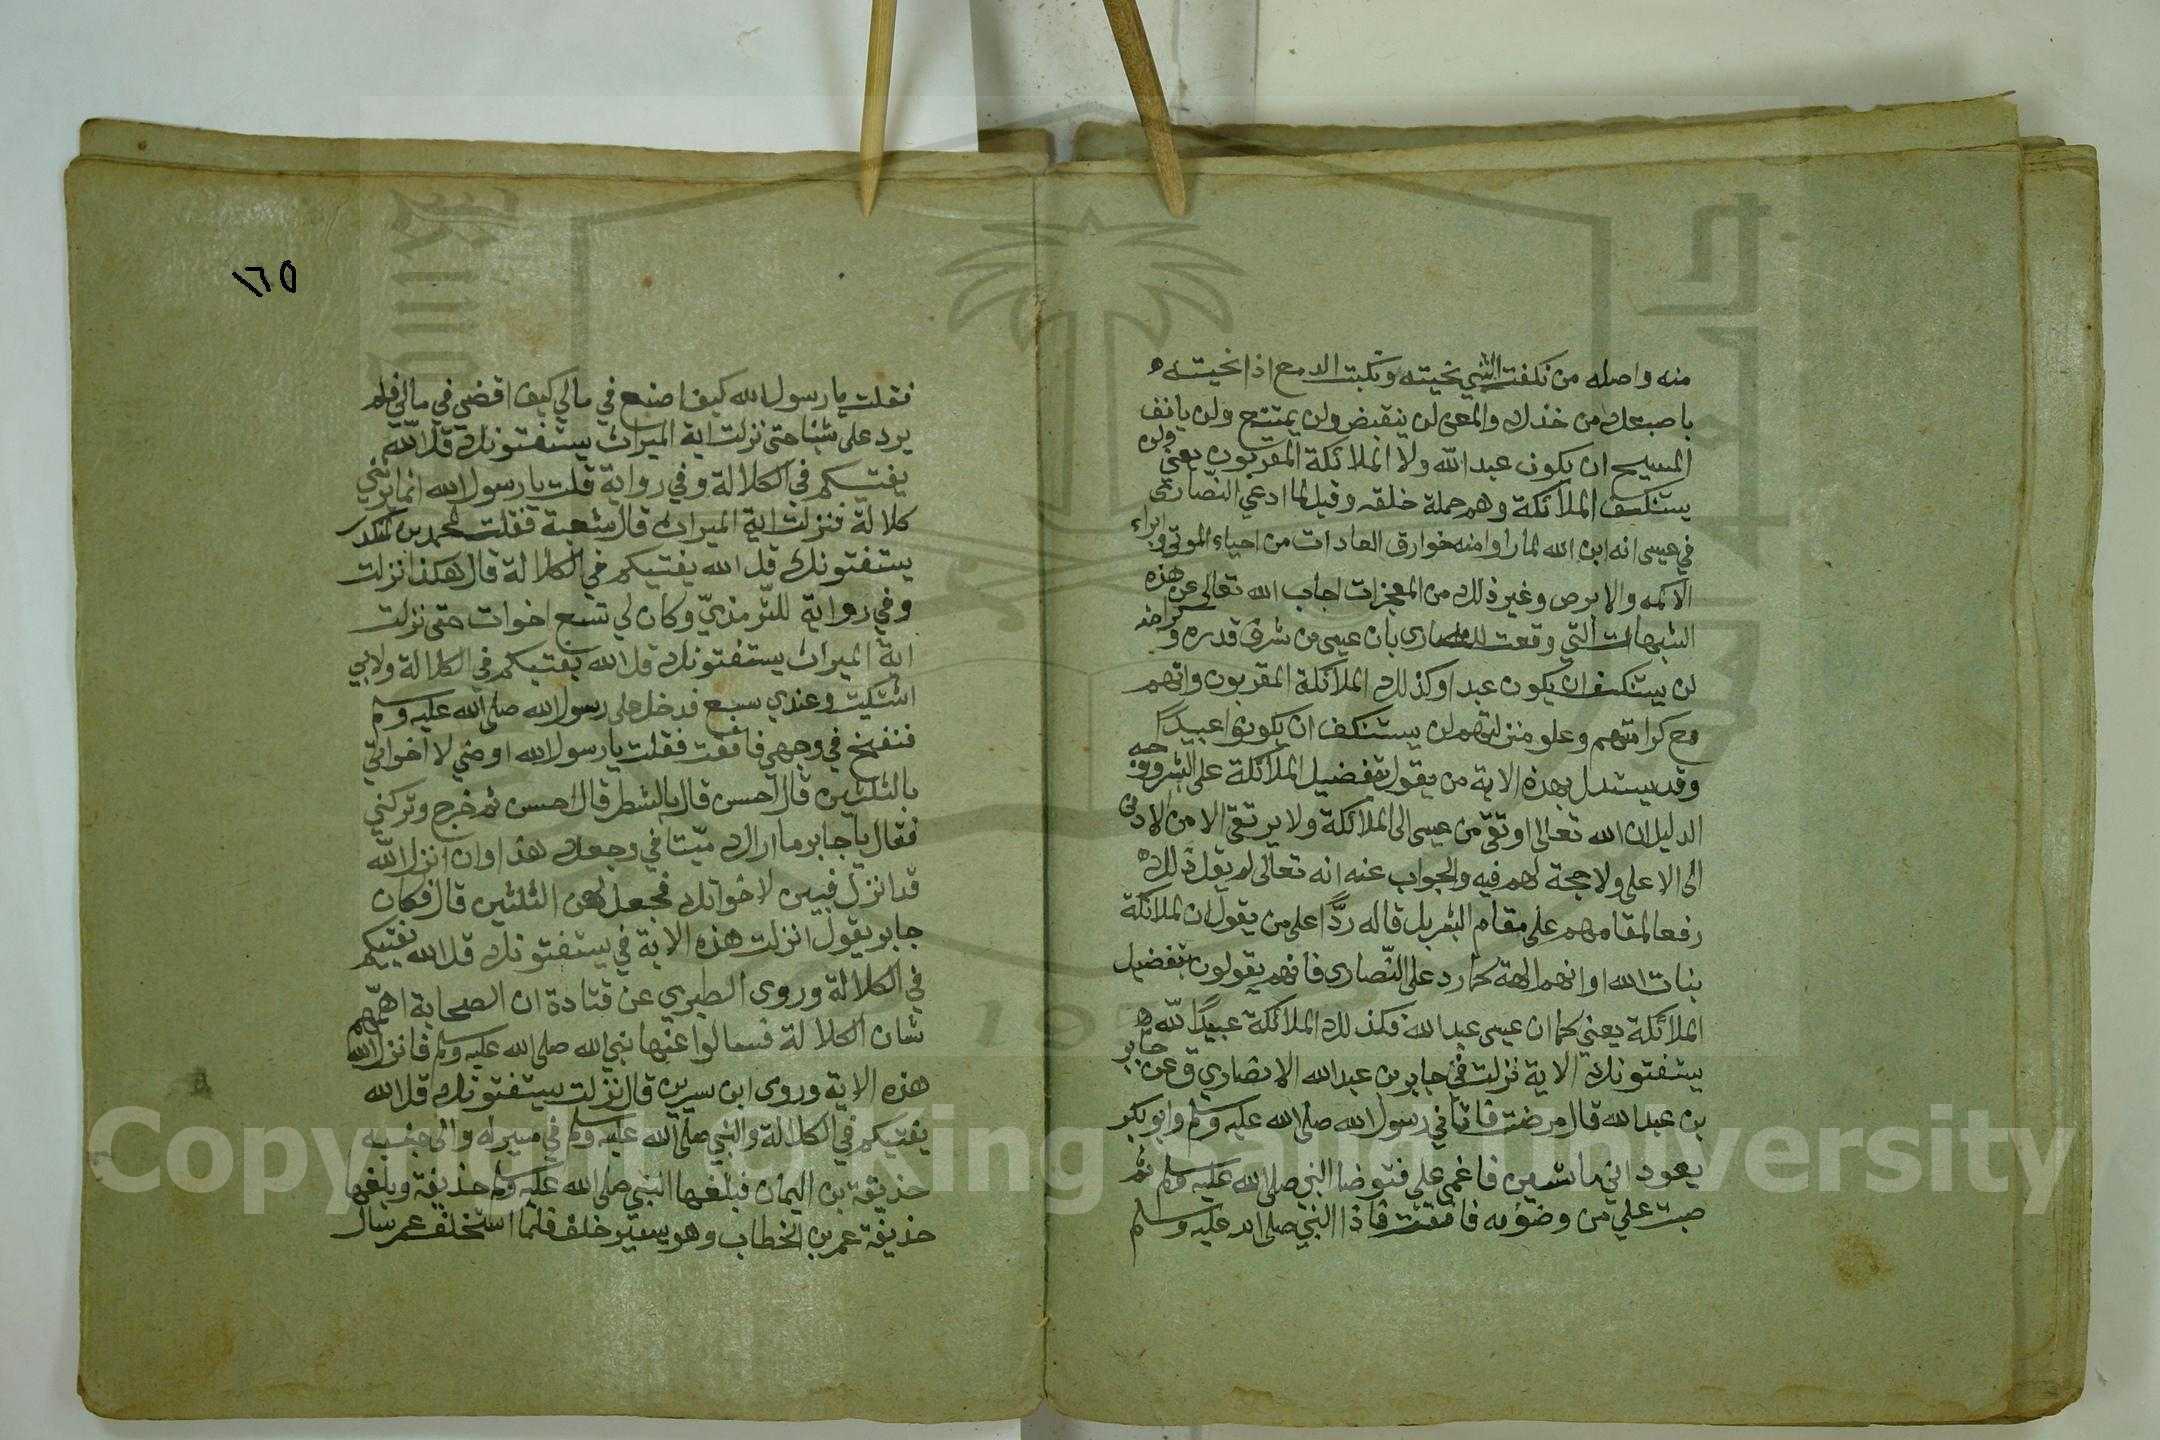 منه واصله من نكفت الشي نحيته ونكبت الدمع اذا نحيته
باصبعك من خدك والمعنى لن ينقبض ولن يمتنع ولن يانف
المسيح ان يكون عبد الله ولا الملائكة المقربون يعني ولن
يستنكف الملائكة وهم حملة خلقه وقيل لما ادعي النصارى
في عيسى انه ابن الله لما راوا منه خوارق العادات من احياء الموتى وابراء
الاكمه والابرص وغير ذلك من المعجزات اجاب الله تعالى عن هذه
الشبهات التي وقعت للنصارى بان عيسى من شرف قدره و
لن يستنكف ان يكون عبدا وكذلك الملائكة المقربون وانهم
مع كرامتهم وعلو منزلتهم لن يستنكف ان يكونوا عبيدًا
وقد يستدل بهذه الاية من يقول بتفضيل الملائكة على البشر ووجه
الدليل ان الله تعالى اوتقى من عيسى الى الملائكة ولا يرتقى الا من الادنى
الى الاعلى ولا حجة لهم فيه والجواب عنه انه تعالى لم يقل ذلك
رفعا لمقامهم على مقام البشر بل قاله ردًّا على من يقول ان الملائكة
بنات الله او انهم الهة كما رد على النّصارى فانهم يقولون بتفضيل
الملائكة يعني كما ان عيسى عبد الله فكذلك الملائكة عبيدًا لله
يستفتونك الاية نزلت في جابر بن عبد الله الانصاري ق عن جابر
بن عبد الله قال مرضت فاتاني رسول الله صلى الله عليه وسلم وابو بكر
يعوداني ماشيين فاغمى علي فتوضا النبي صلى الله عليه وسلم ثم
صبت علي من وضوئه فافقت فاذا النبي صلى الله عليه وسلم
١٦٥
فقلت يا رسول الله كيف اصنع في مالي كيف اقضي في مالي فلم
يرد على شيئا حتى نزلت اية الميراث يستفتونك قل الله
يفتيكم في الكلالة وفي رواية قلت يا رسول الله انما يرثني
كلالة فنزلت اية الميراث قال شعبة فقلت لمحمد بن المنكدر
يستفتونك قل الله يفتيكم في الكلالة قال هكذا نزلت
وفي رواية للتّرمذيّ وكان لي تسع اخوات حتى نزلت
اية الميراث يستفتونك قل الله يفتيكم في الكلالة ولابي
اشتكيت وعندي سبع فدخل على رسول الله صلى الله عليه وسلم
فنفخ في وجهي فافقت فقلت يا رسول الله اوصي لاخواتي
بالثلثين قال احسن قال بالشطر قال احسن ثم خرج وتركني
فقال يا جابر ما اراك ميّتا في وجعك هذا وان انزل الله
قد انزل فبين لاخواتك فجعل لهن الثلثين قال فكان
جابر يقول انزلت هذه الاية في يستفتونك قل الله يفتيكم
في الكلالة وروى الطبري عن قتادة ان الصحابة اهمّهم
شان الكلالة فسالوا عنها نبي الله صلى الله عليه وسلم فانزل الله
هذه الاية وروى ابن سيرين قال نزلت يستفتونك قل الله
يفتيكم في الكلالة والنبي صلى الله عليه وسلم في مسير له والى جنبه
حذيفة بن اليمان فبلغها النبي صلى الله عليه وسلم حذيفة وبلغها
حذيفة عمر بن الخطاب وهو يسير خلفه فلما استخلف عمر سال
Copyright © King Saud University